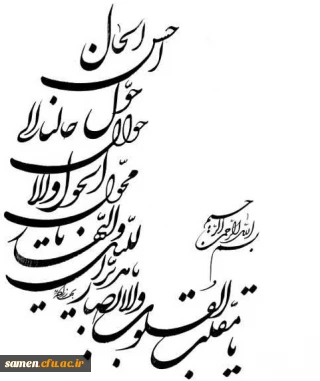 بسم الله الرحمن الرحیم
یا مقلب القلوب والابصار
یا مدبر اللیل والنهار
یا محوّل الحول والاحوال
حوّل حالنا الی
احسن الحال
samen.cfu.ac.ir